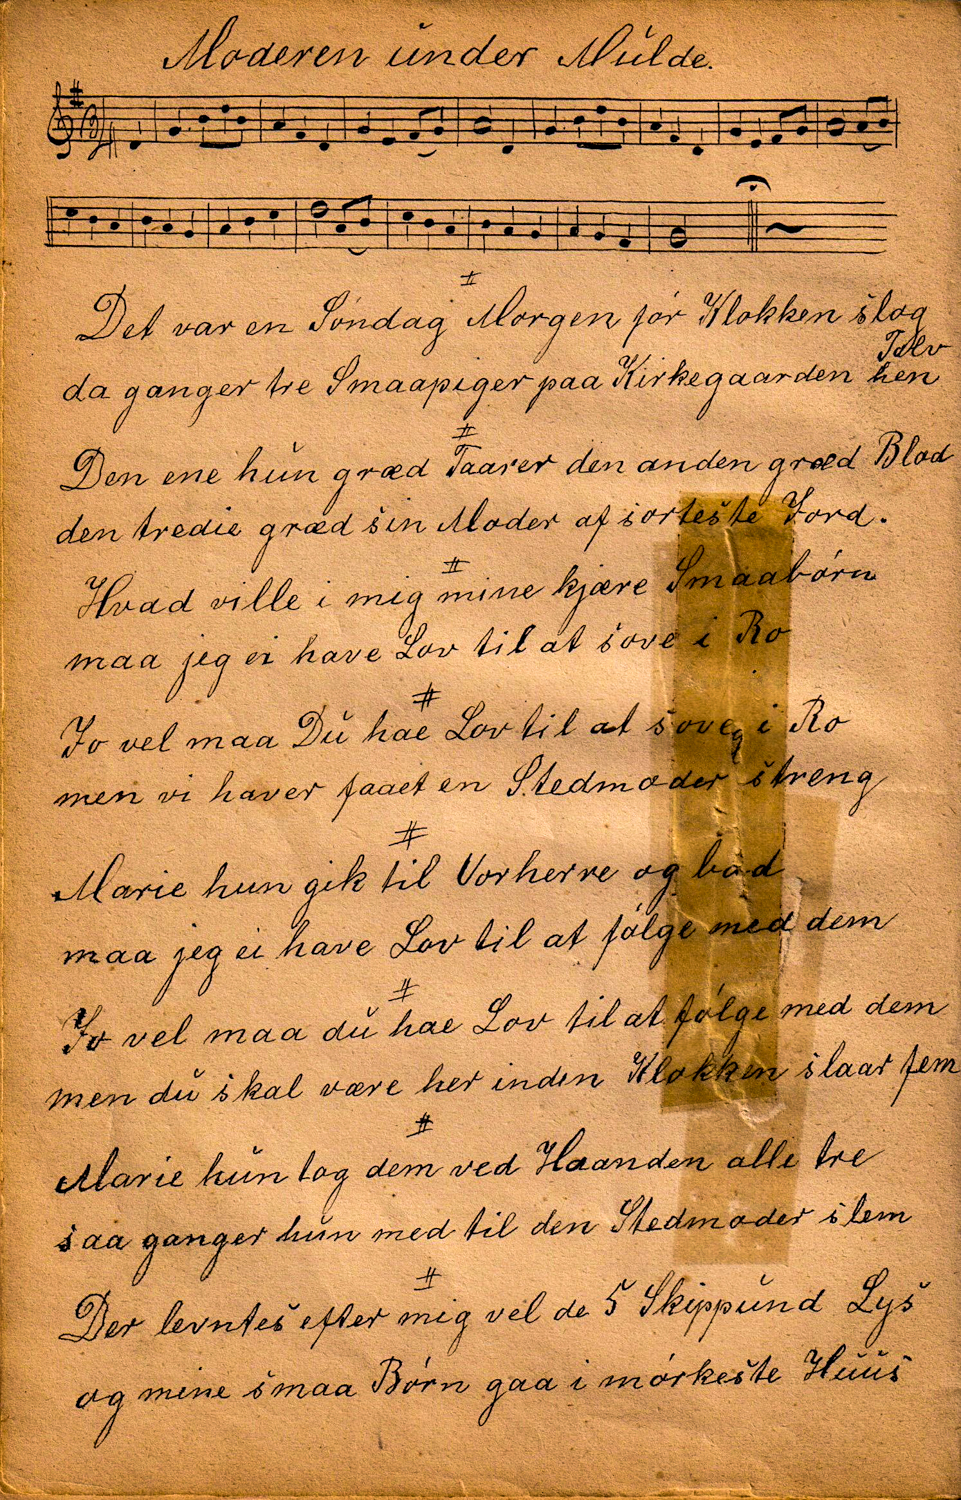 Moderen under Mulde.
Det var en Söndag Morgen för Klokken slog
Tolv
da ganger tre Smaapiger paa Kirkegaarden hen
Den ene hun græd Taarer den anden græd Blod
den tredie græd sin Moder af sorteste Jord.
Hvad ville i mig mine kjære Smaabörn
maa jeg ei have Lov til at sove i Ro
Jo vel maa Du hae Lov til at sove i Ro
men vi haver faaet en Stedmoder streng
Marie hun gik til Vorherre og bad
maa jeg ei have Lov til at fölge med dem
Jo vel maa du hae Lov til at fölge med dem
men du skal være her inden Klokken slaar fem
Marie hun tog dem ved Haanden alle tre
saa ganger hun med til den Stedmoder slem
Der levntes efter mig vel de 5 Skippund Lys
og mine smaa Börn gaa i mörkeste Huus